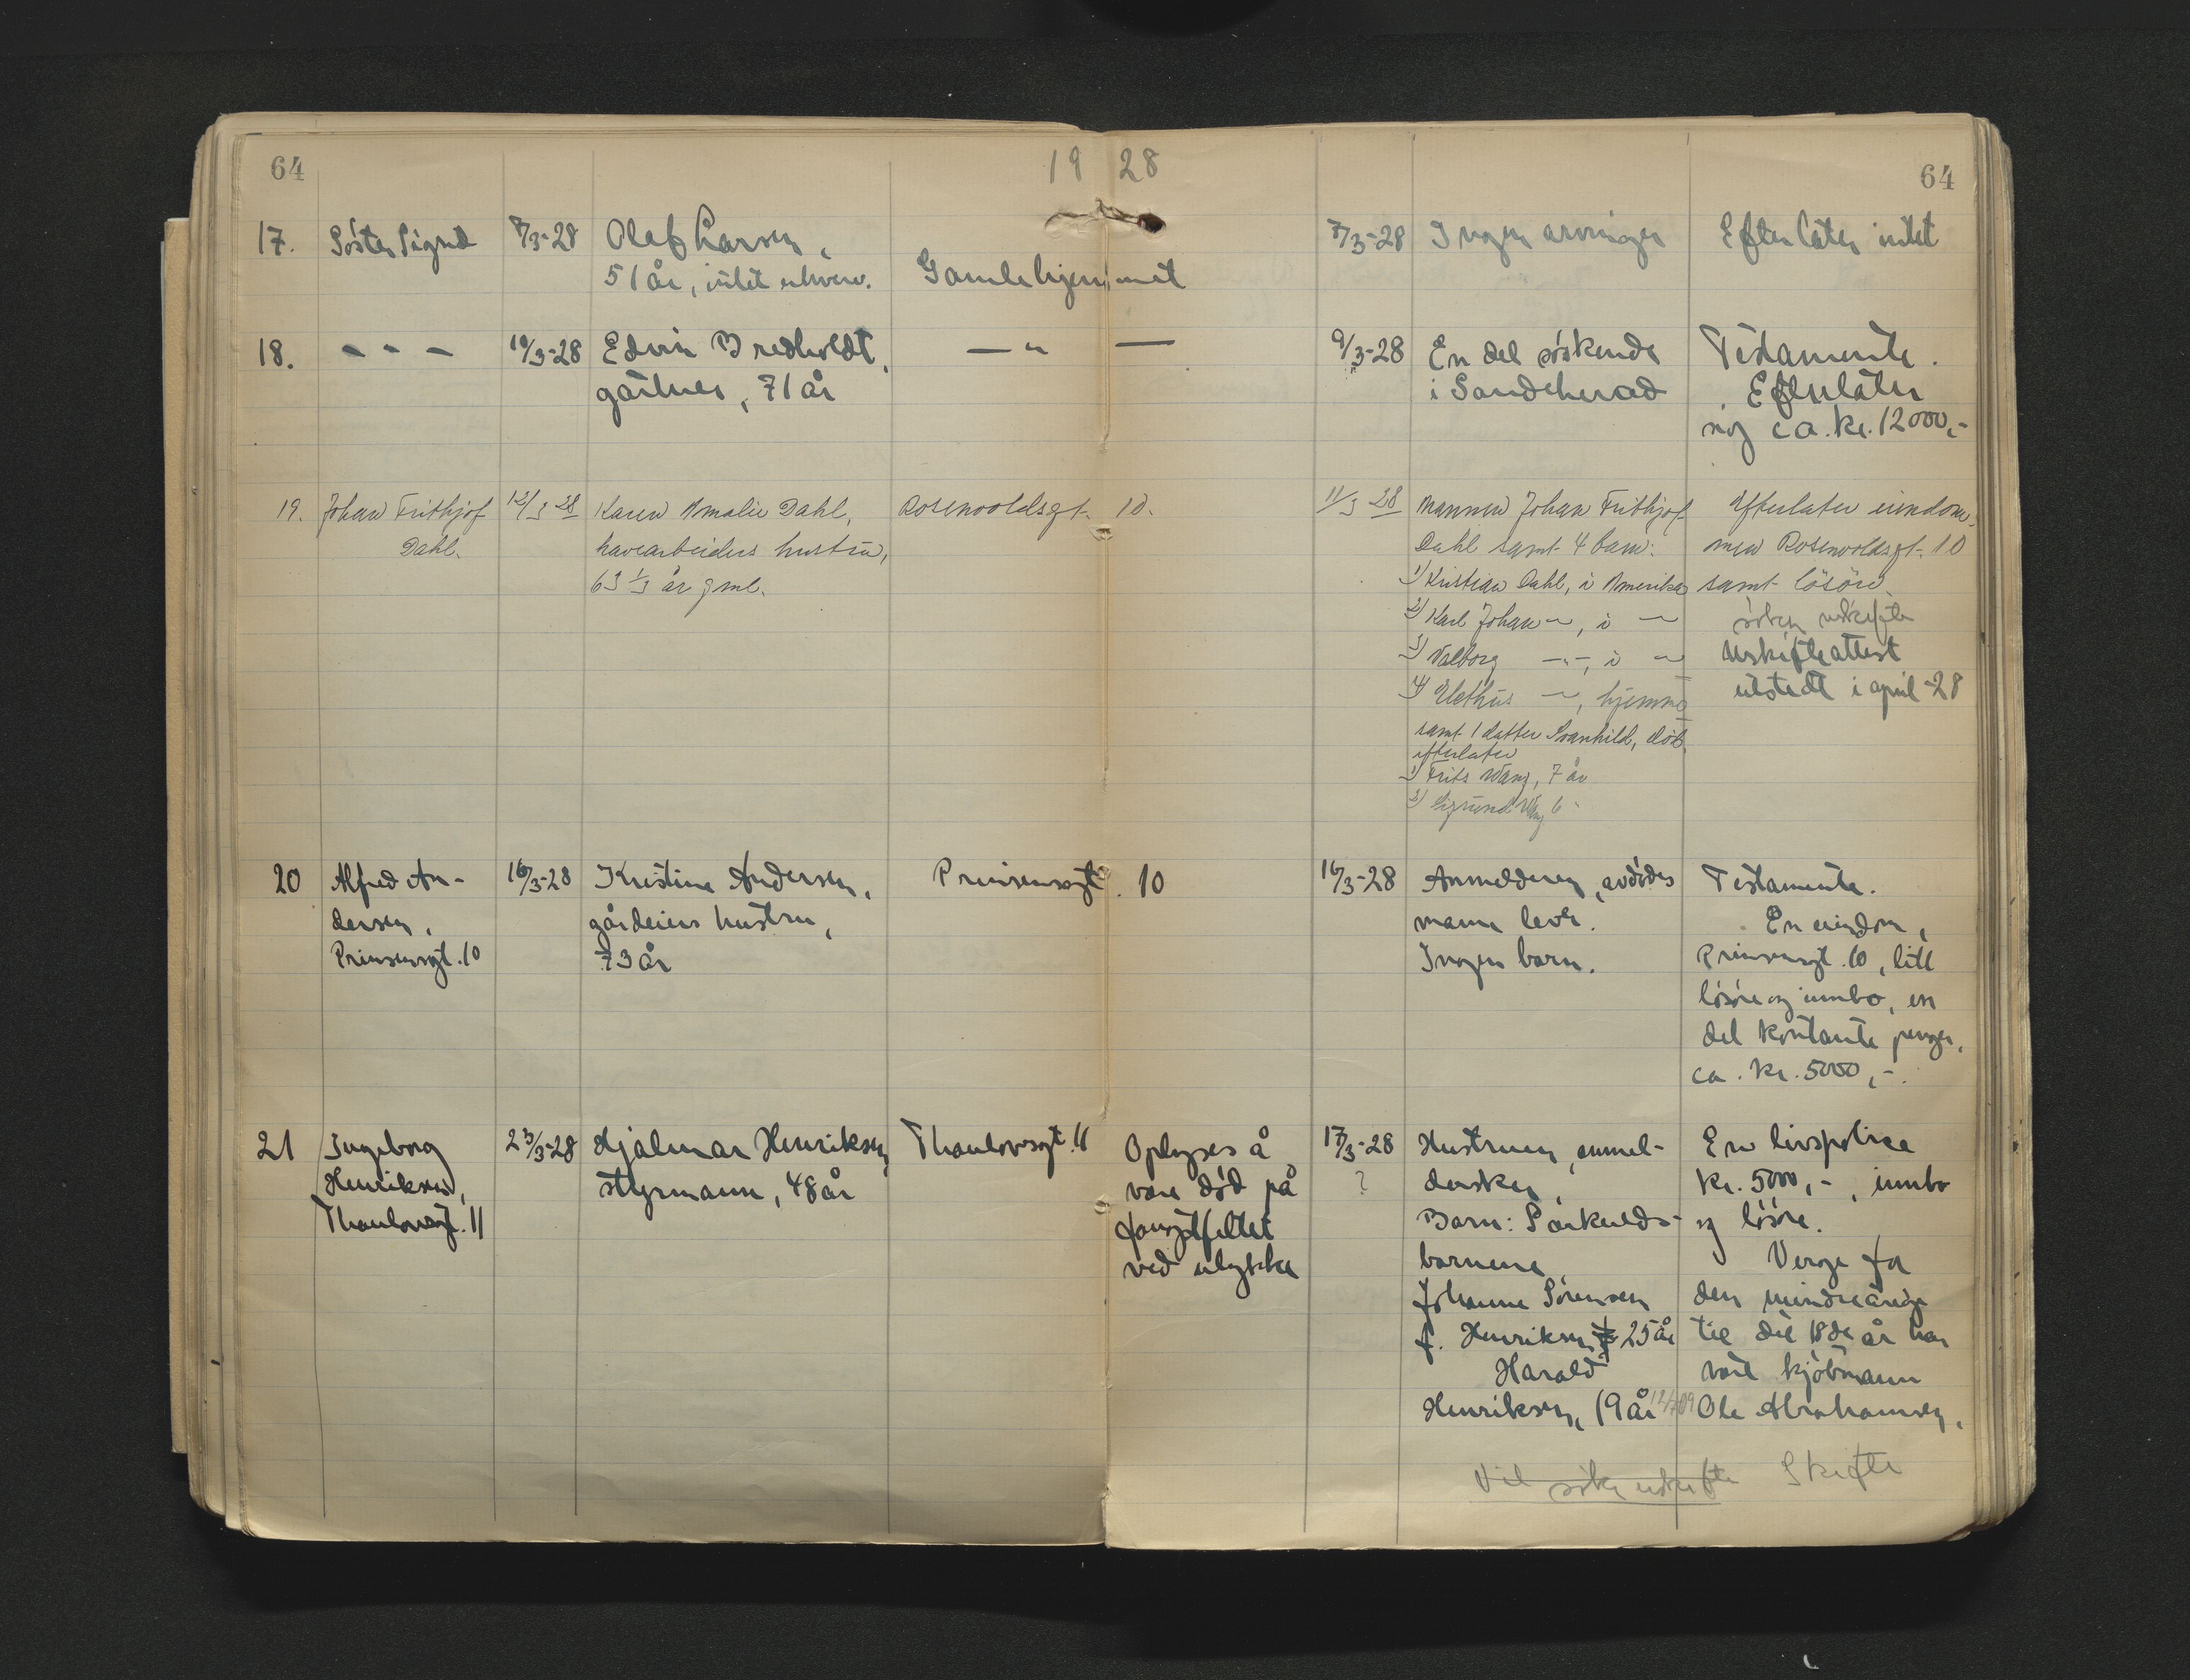 64
19 28
64
17. Söster Sigrid 7/3-28 Olaf Larsen,
51 år, intet erhverv. Gamlehjemmet
7/3-28 Ingen arvinger Efterlater intet
18. - - - 10/3-28 Edvin Bredholdt,
gartner, 71 år
— " —
9/3-28 En del söskende
i Sandeherad
Testamente.
Efterlater
sig ca. kr. 12000,-
19. Johan Frithjof
Dahl.
12/3 28 Karen Amalie Dahl,
havearbeiders hustru,
63 1/3 år gml.
Rosenvoldsgt. 10.
11/3 28 Mannen Johan Frithjof
Dahl samt 4 barn:
1) Kristian Dahl, i Amerika
2) Karl Johan —, i —
3) Valborg —"—, i —
4) —, hjemme
samt 1 datter Svanhild, död,
efterlater
1) Frits Wang, 7 år
2) Sigrund Wang 6 -
Efterlater eiendom-
men Rosenvoldsgt. 10
samt lösöre.
söker uskifte
Uskifteattest
utstedt i april -28
20 Alfred An-
dersen,
Prinsensgt. 10
16/3-28 Kristine Andersen,
gårdeiers hustru,
73 år
Prinsensgt. 10
16/3-28 Anmelderen, avdödes
mann lever.
Ingen barn.
Testamente.
En eiendom,
Prinsensgt. 10, litt
lösöre og innbo, en
del kontante penger,
ca. kr. 5000,-.
21 Ingeborg
Henriksen,
Thaulowsgt. 11
23/3-28 Hjalmar Henriksen
styrmann, 48 år
Thaulowsgt. 11
Oplyses å
være död på
fangstfeltet
ved ulykke
17/3-28
?
Hustruen, anmel-
dersken,
Barn: Særkulds-
barnene
Johanne Sörensen
f. Henriksen 25 år
Harald
Henriksen, 19 år 12/7 09
En livspolice
kr. 5000,-, innbo
og lösöre.
Verge for
den mindreårige
til det 18de år har
vært kjöbmann
Ole Abrahamsen.
Vil söke uskifte Skifte